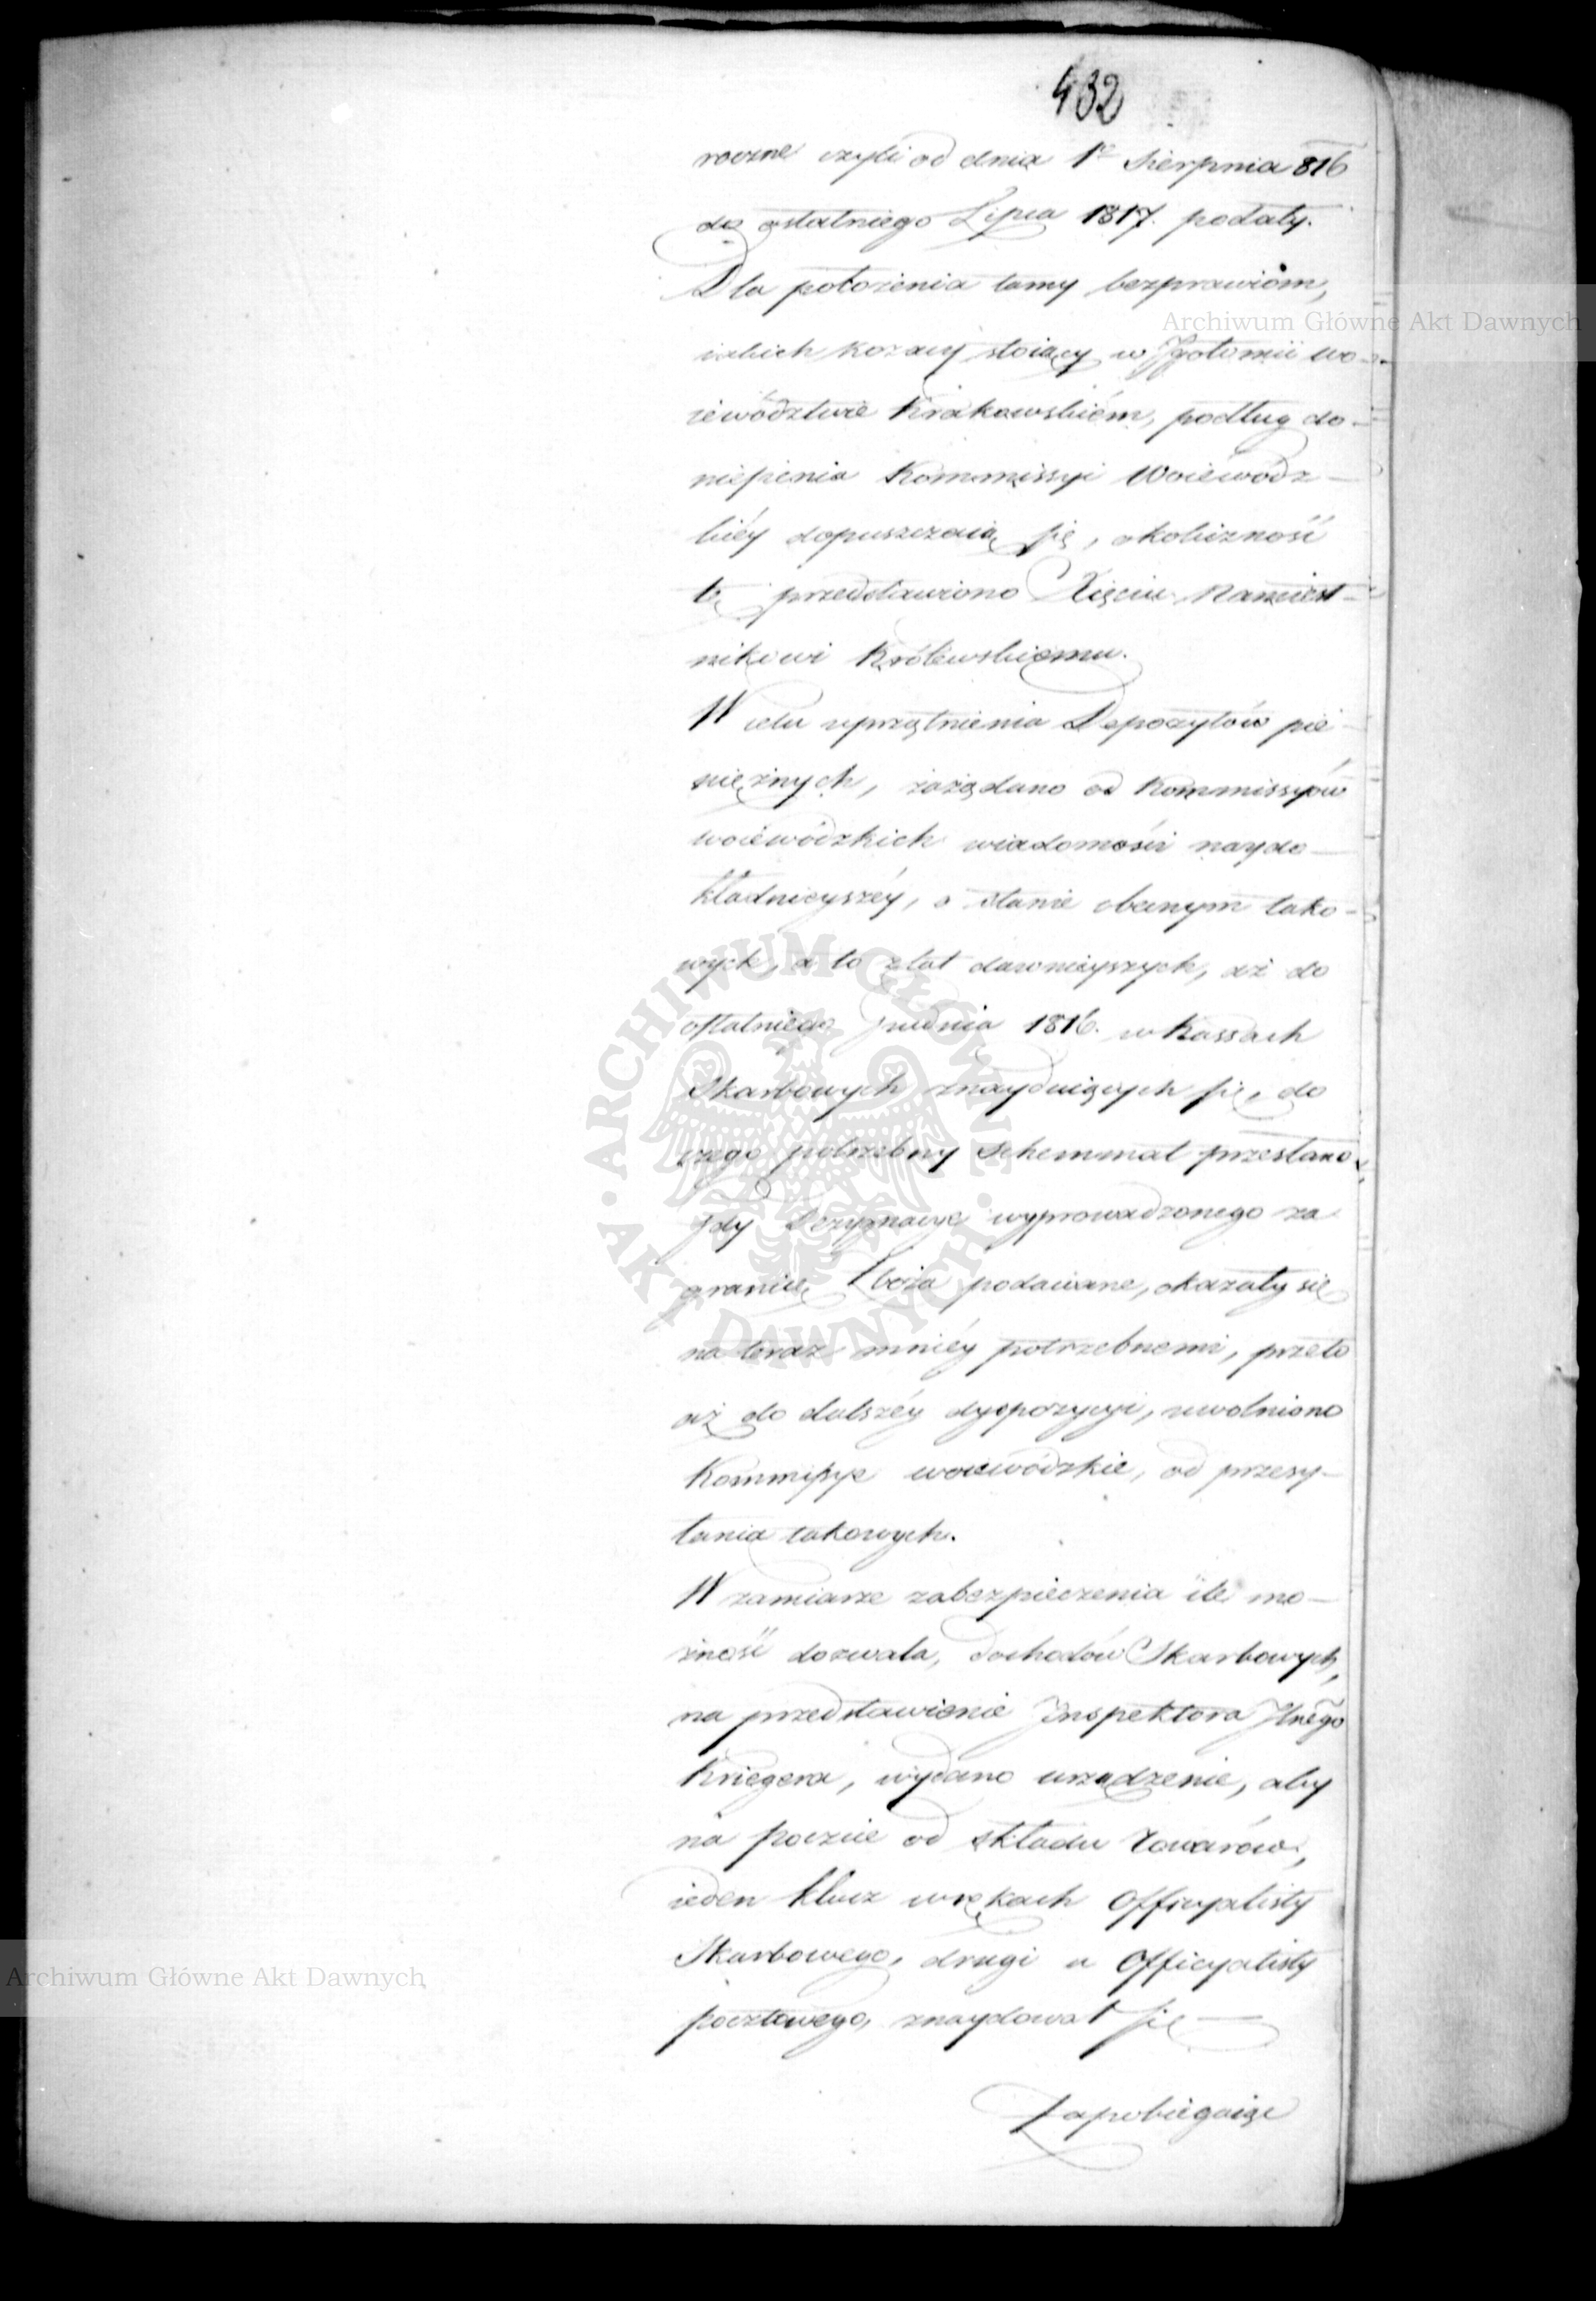 432
roczne czyli od dnia 1º Sierpnia 816
do ostatniego Lipca 1817. podały.
Dla położenia tamy bezprawiom,
iakich kozacy stoiący w Igołomii wo-
iewództwie Krakowskiém, podług do-
niesienia Kommissyi Woiewódz-
kiéy dopuszczaią się, okoliczność
tę przedstawiono Xięciu Namiest-
nikowi Królewskiemu.
W celu uprzątnienia Depozytów pie-
niężnych, zażądano od Kommissyów
woiewódzkich wiadomości naydo-
kładnieyszéy, o stanie obecnym tako-
wych, a to z lat dawnieyszych, aż do
ostatniego Grudnia 1816. w Kassach
Skarbowych znayduiących się, do
czego potrzebny schemmat przesłano.
Gdy Dezygnacye wyprowadzonego za
granicę Zboża podawane, okazały się
na teraz mniéy potrzebnemi, przeto
aż do dalszéy dyspozycyi, uwolniono
Kommissye woiewódzkie, od przesy-
łania takowych.
W zamiarze zabezpieczenia ile mo-
żność dozwala, dochodów Skarbowych,
na przedstawienie Inspektora Jlnego
Kriegera, wydano urządzenie, aby
na poczcie od składu towarów,
ieden klucz w rękach Officyalisty
Skarbowego, drugi u Officyalisty
pocztowego, znaydował się —
Zapobiegaiąc
Archiwum Główne Akt Dawnych
Archiwum Główne Akt Dawnych
ARCHIWUM GŁÓWNE · AKT DAWNYCH ·